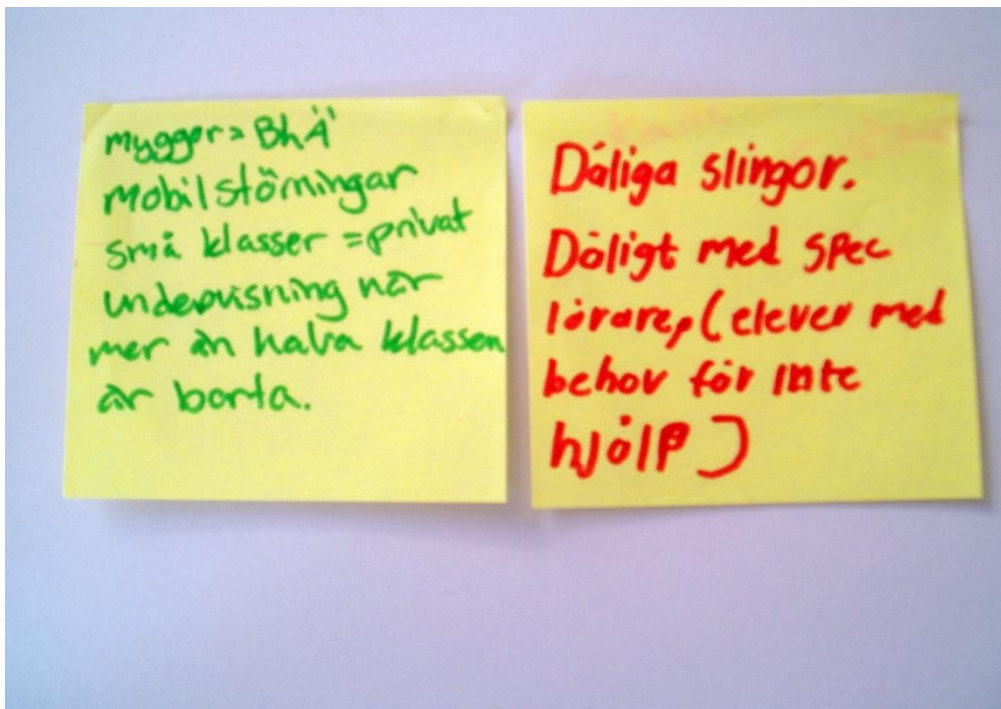 myggor = BhÄ
mobilstörningar
små klasser = privat
undervisning när
mer än halva klassen
är borta.
Dåliga slingor.
Dåligt med spec
lärare, (elever med
behov får inte
hjälp)